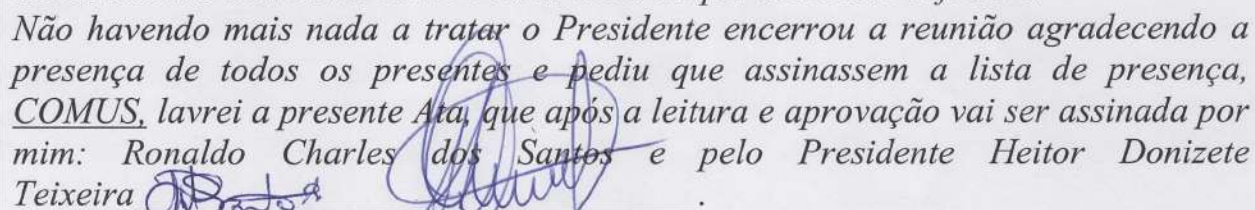 Não havendo mais nada a tratar o Presidente encerrou a reunião agradecendo a
presença de todos os presentes e pediu que assinassem a lista de presença,
COMUS, lavrei a presente Ata, que após a leitura e aprovação vai ser assinada por
mim: Ronaldo Charles dos Santos e pelo Presidente Heitor Donizete
Teixeira .